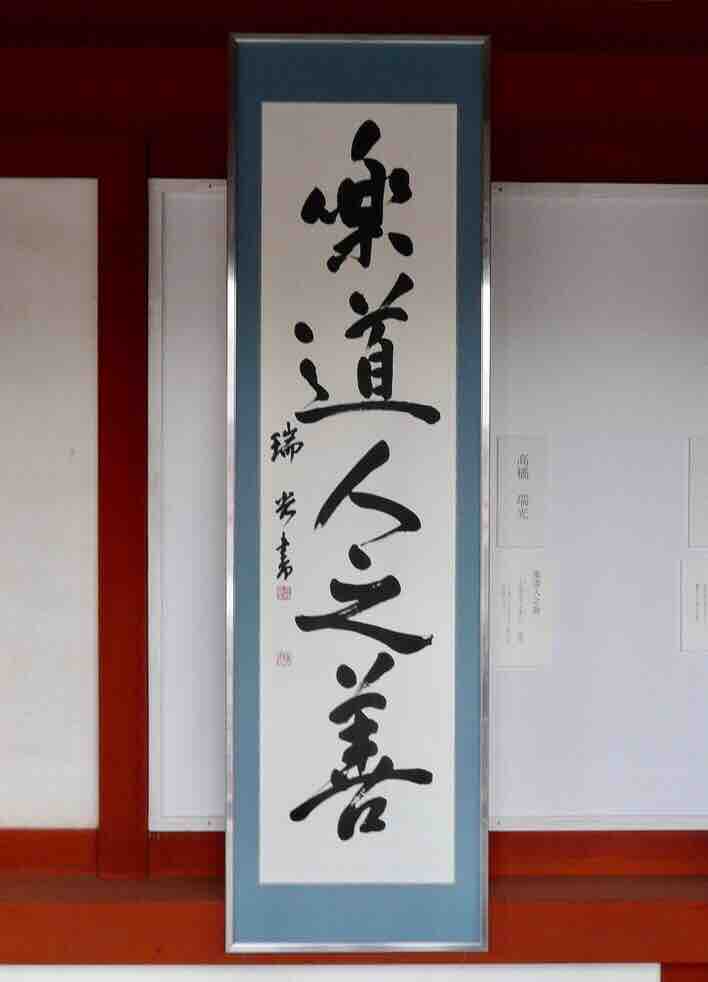 楽道人之善
瑞光書
高橋 瑞光
楽道人之善